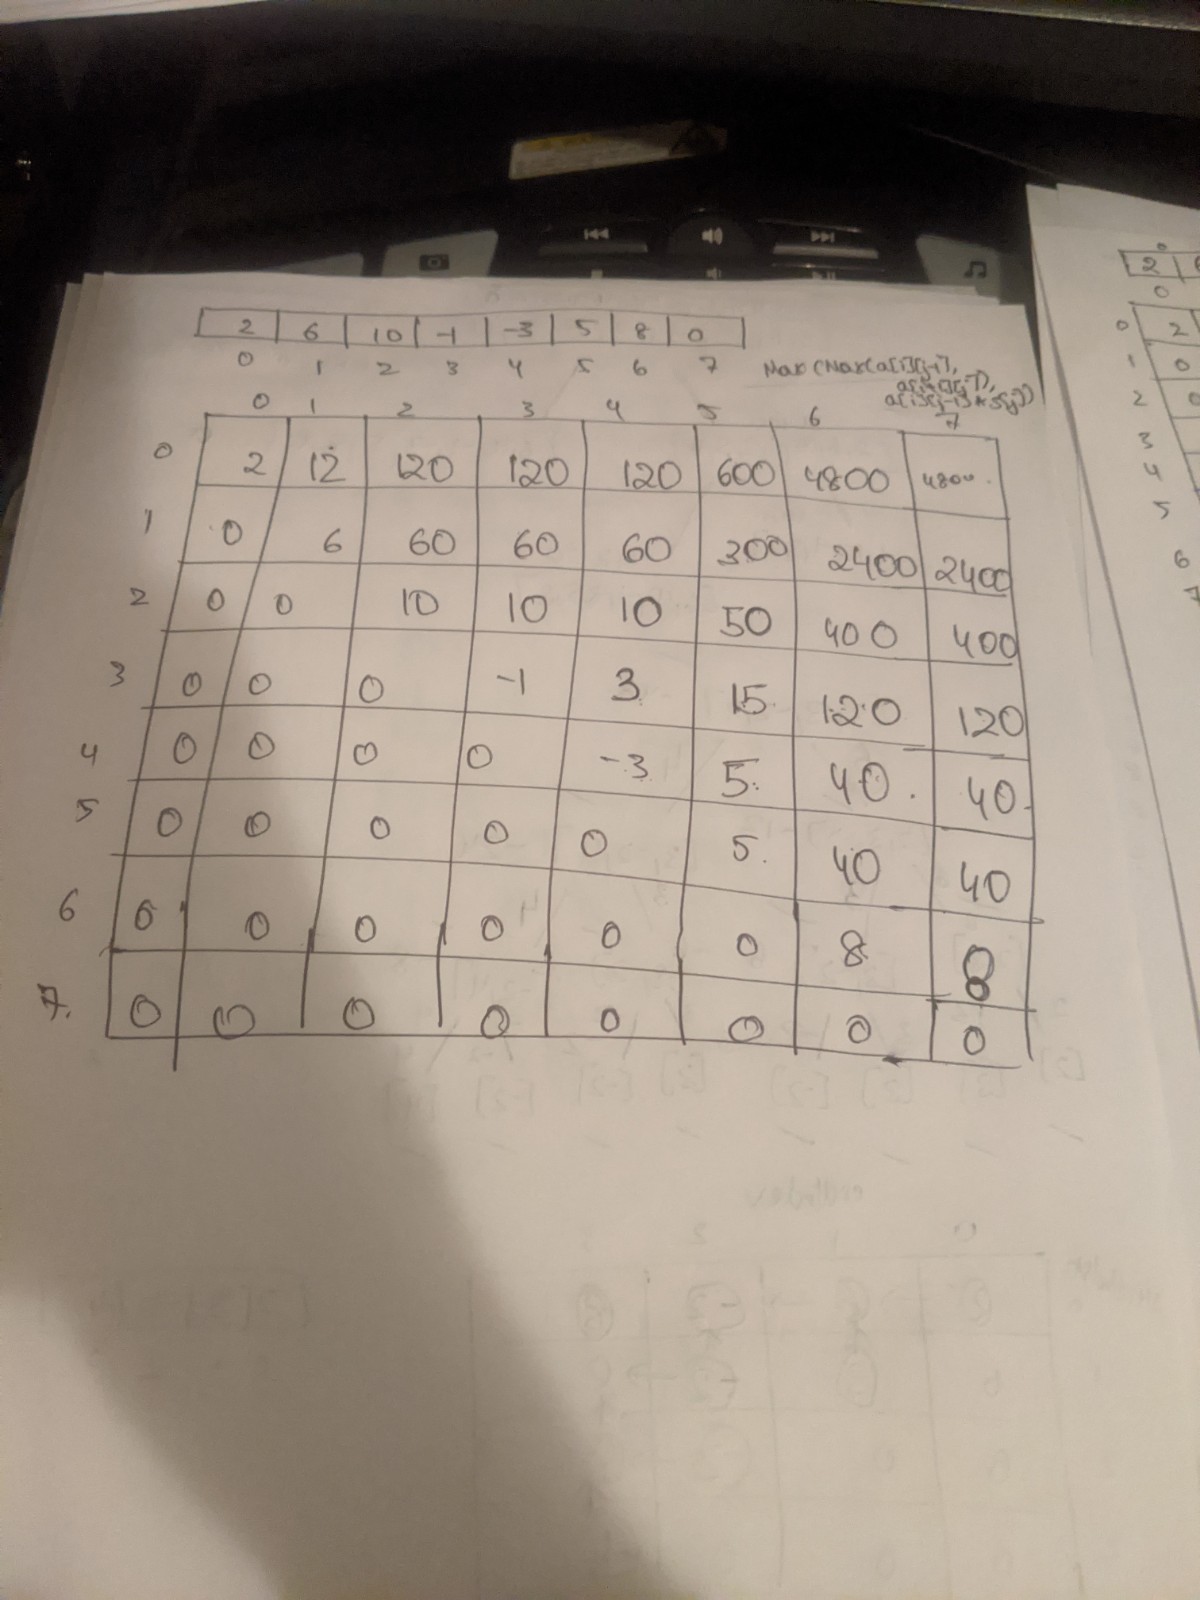 2 6 10 -1 -3 5 8 0
0 1 2 3 4 5 6 7
Max(Max(a[i][j-1],
a[i+1][j]),
a[i][j-1]*s[j])
0 1 2 3 4 5 6 7
0 2 12 120 120 120 600 4800 4800
1 0 6 60 60 60 300 2400 2400
2 0 0 10 10 10 50 400 400
3 0 0 0 -1 3 15 120 120
4 0 0 0 0 -3 5 40 40
5 0 0 0 0 0 5 40 40
6 0 0 0 0 0 0 8 8
7. 0 0 0 0 0 0 0 0
0
2
0
0 2
1 0
2 0
3
4
5
6
7